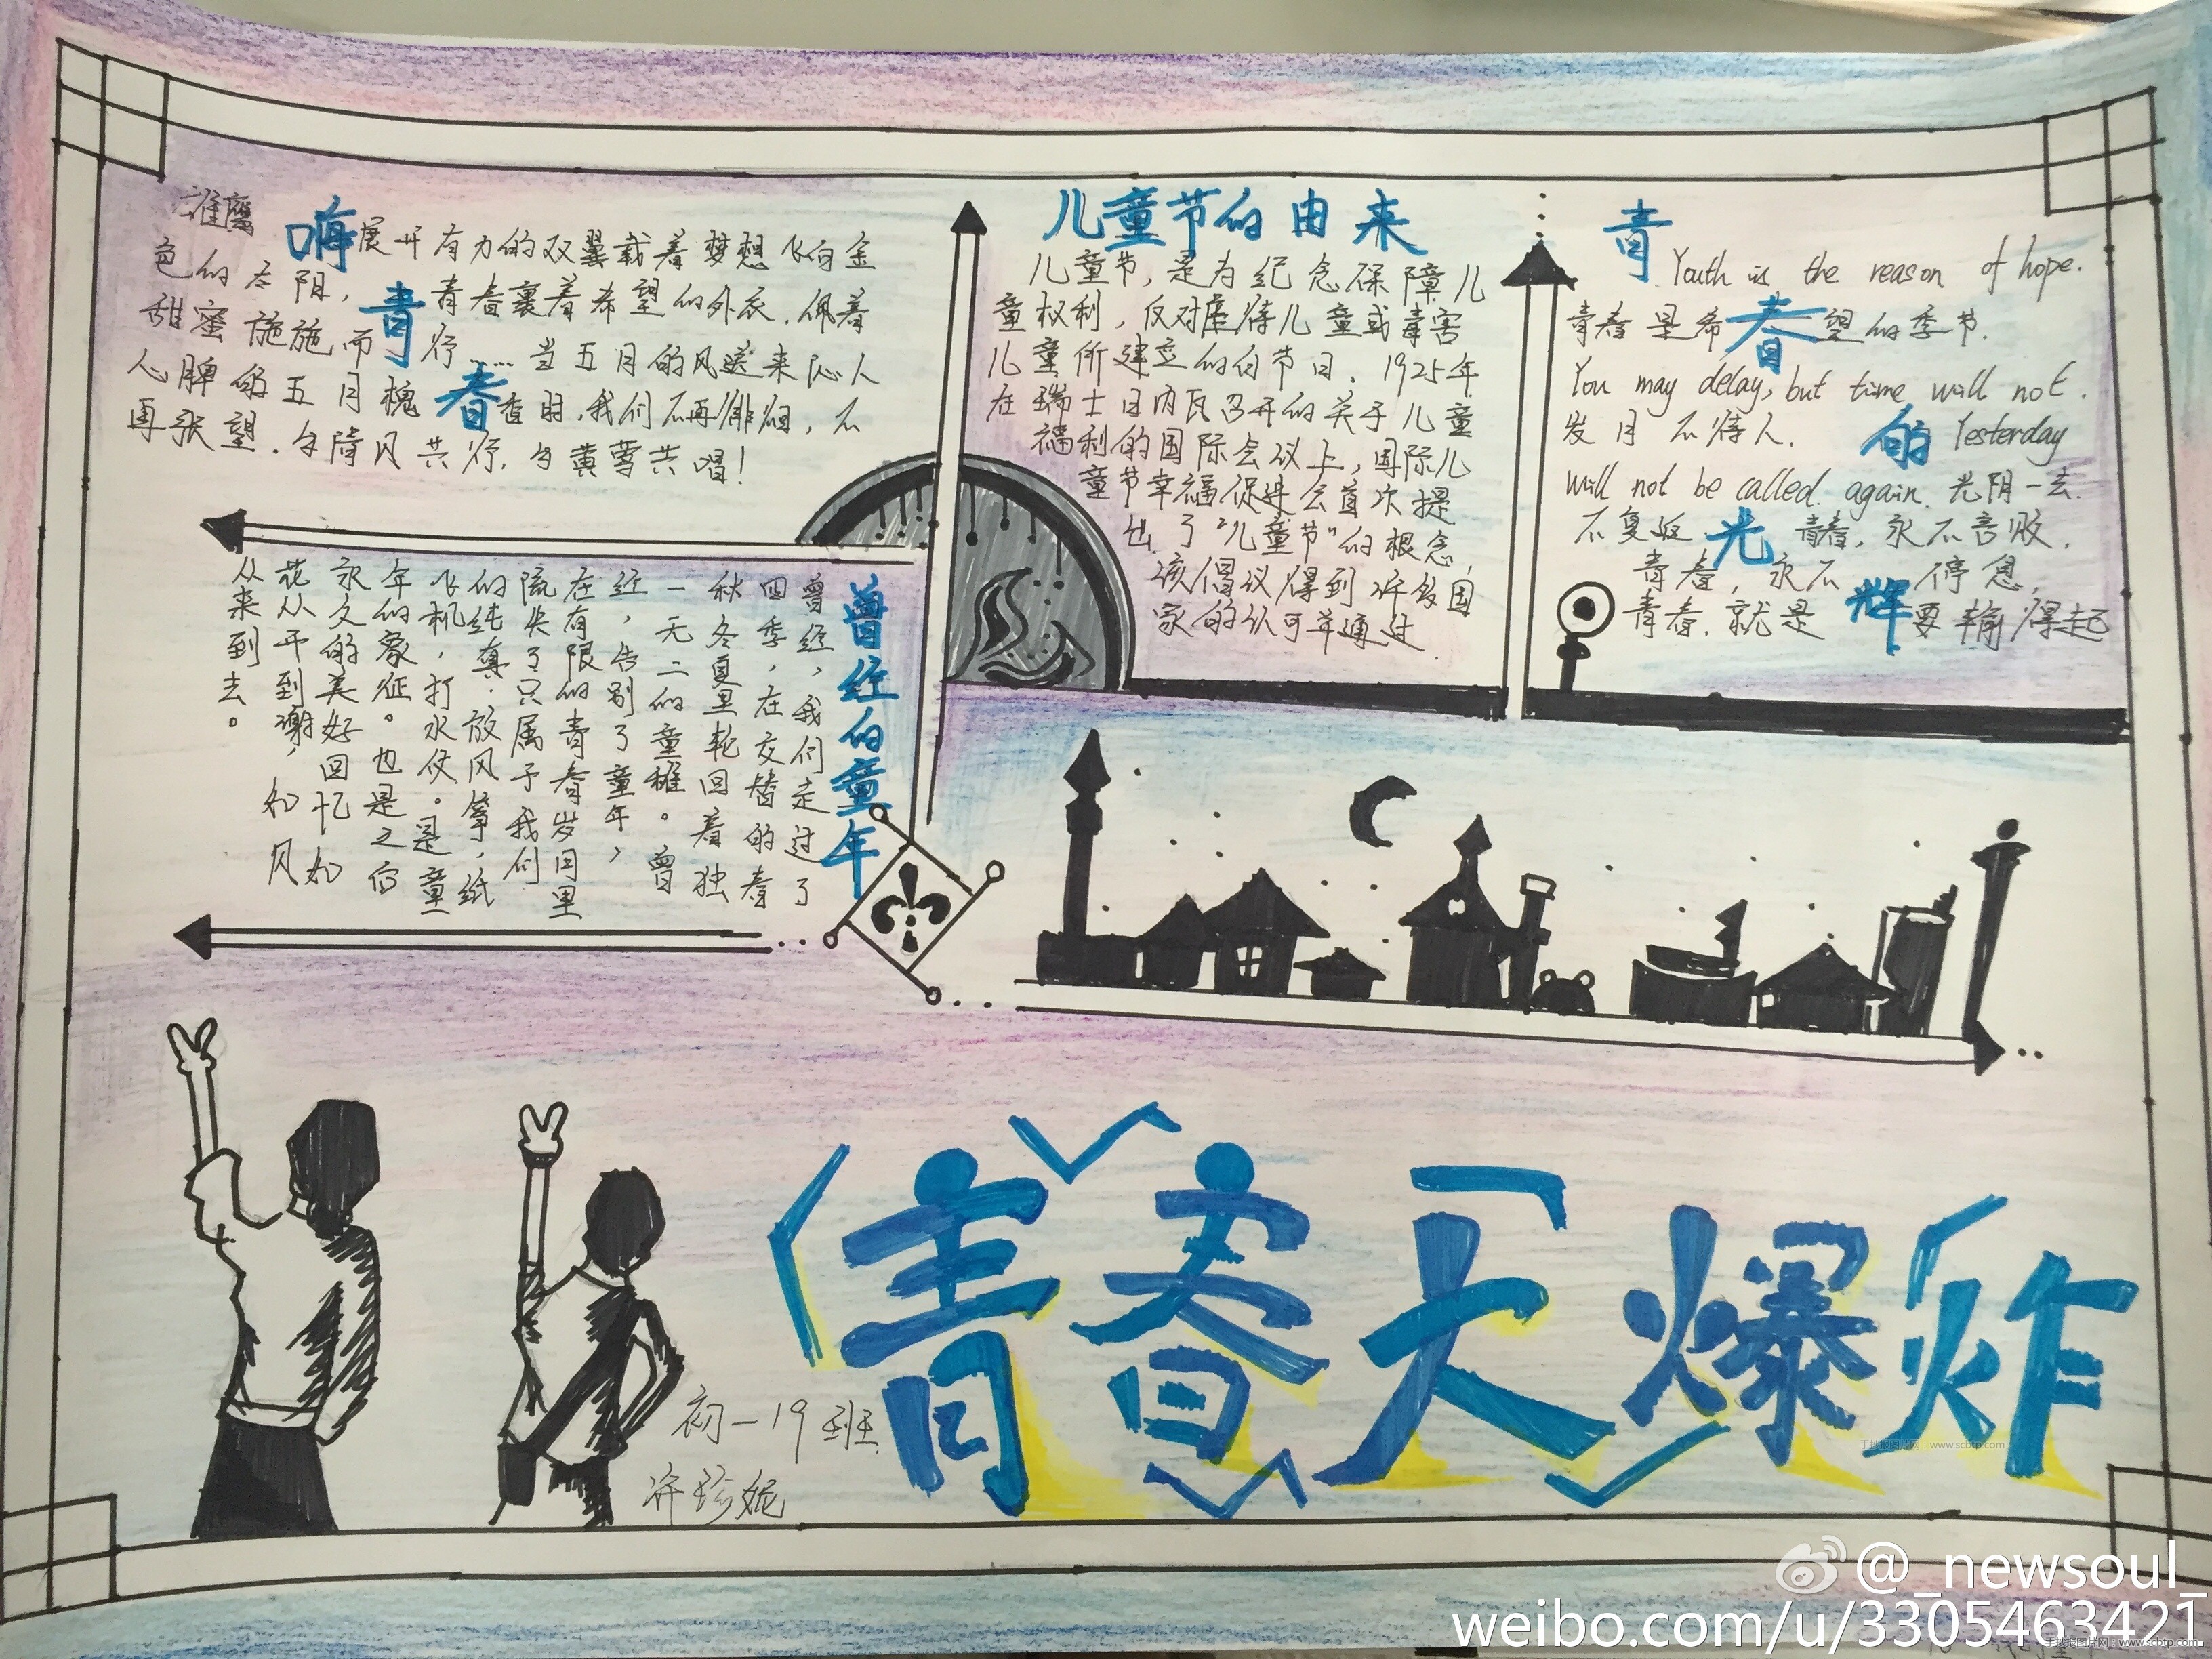 嗨青春
雄鹰展开有力的双翼载着梦想飞向金
色的太阳，青春裹着希望的外衣，佩着
甜蜜施施而行……当五月的风送来沁人
心脾的五月槐香时，我们不再徘徊，不
再张望，与清风共行，与黄莺共唱！
儿童节的由来
儿童节，是为纪念保障儿
童权利，反对虐待儿童或毒害
儿童所建立的的节日。1925年
在瑞士日内瓦召开的关于儿童
福利的国际会议上，国际儿
童节幸福促进会首次提
出了“儿童节”的概念，
该倡议得到许多国
家的认可并通过.
青春的光辉
Youth is the reason of hope.
青春是希望的季节.
You may delay, but time will not.
岁月不待人. Yesterday
will not be called again. 光阴一去
不复返 青春，永不言败，
青春，永不停息，
青春，就是要输得起
曾经的童年
曾经，我们走过了
四季，在交替的春
秋冬夏里轮回着独
一无二的童稚。曾
经，告别了童年，
在有限的青春岁月里
流失了只属于我们
的纯真，放风筝，纸
飞机，打水仗。是童
年的象征。也是之后
永久的美好回忆如
花从开到谢，如风
从来到去。
青春大爆炸
初一19班
许珍妮
手抄报图片网：www.scbtp.com
@_newsoul_
weibo.com/u/3305463421
手抄报图片网：www.scbtp.com